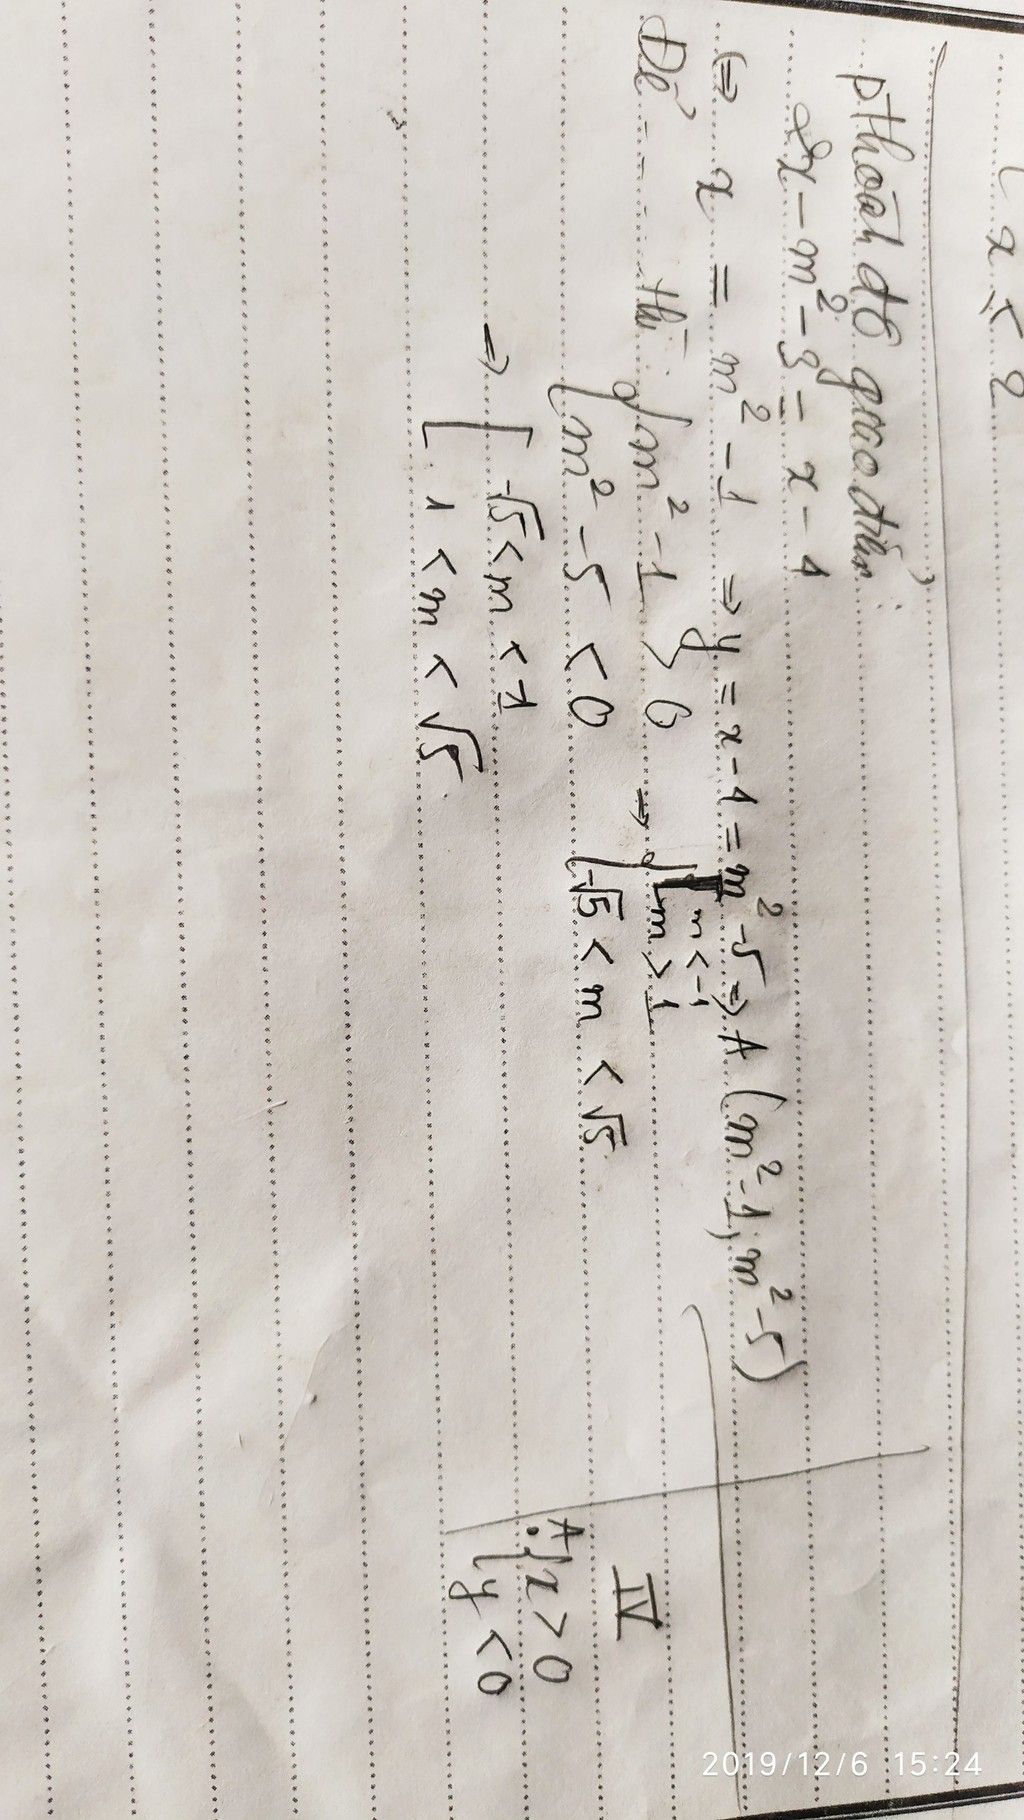 x < 2
pt hoành độ giao điểm:
2x - m² - 3 = x - 4
⇔ x = m² - 1 ⇒ y = x - 4 = m² - 5 ⇒ A (m² - 1, m² - 5)
Để - - - thì { m² - 1 > 0 ⇒ { [ m < -1
m > 1
m² - 5 < 0
-√5 < m < √5
⇒ [ -√5 < m < -1
1 < m < √5
IV
A { x > 0
y < 0
2019/12/6 15:24